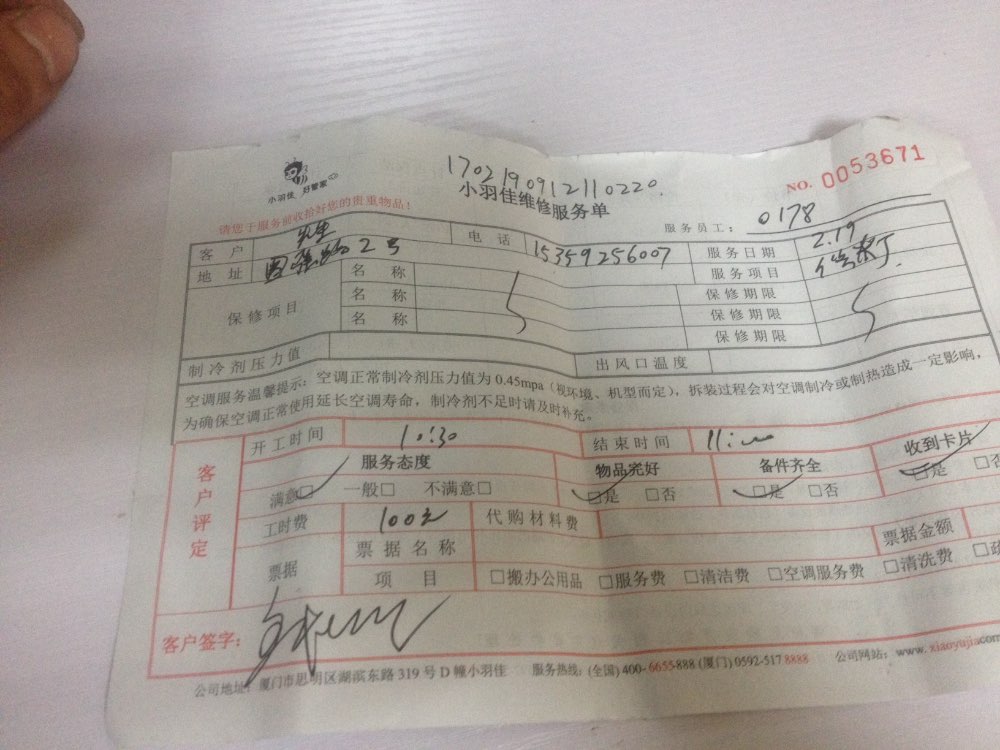 1702190912110220
小羽佳 好管家
小羽佳维修服务单
NO. 0053671
请您于服务前收拾好您的贵重物品！
服务员工： 0178
客户 电话 15359256007 服务日期 2.19
地址 2号 服务项目
保修项目
名称 保修期限
名称 保修期限
名称 保修期限
制冷剂压力值 出风口温度
空调服务温馨提示：空调正常制冷剂压力值为 0.45mpa（视环境、机型而定），拆装过程会对空调制冷或制热造成一定影响，
为确保空调正常使用延长空调寿命，制冷剂不足时请及时补充。
客户评定
开工时间 10:30 结束时间
服务态度 物品完好 备件齐全 收到卡片
满意□ 一般□ 不满意□ □是 □否 □是 □否 □是 □否
工时费 100元 代购材料费
票据 票据名称 票据金额
项目 □搬办公用品 □服务费 □清洁费 □空调服务费 □清洗费
客户签字：
公司地址：厦门市思明区湖滨东路 319 号 D 幢小羽佳 服务热线：(全国) 400-6655-888 (厦门) 0592-517 8888 公司网站：www.xiaoyujia.com